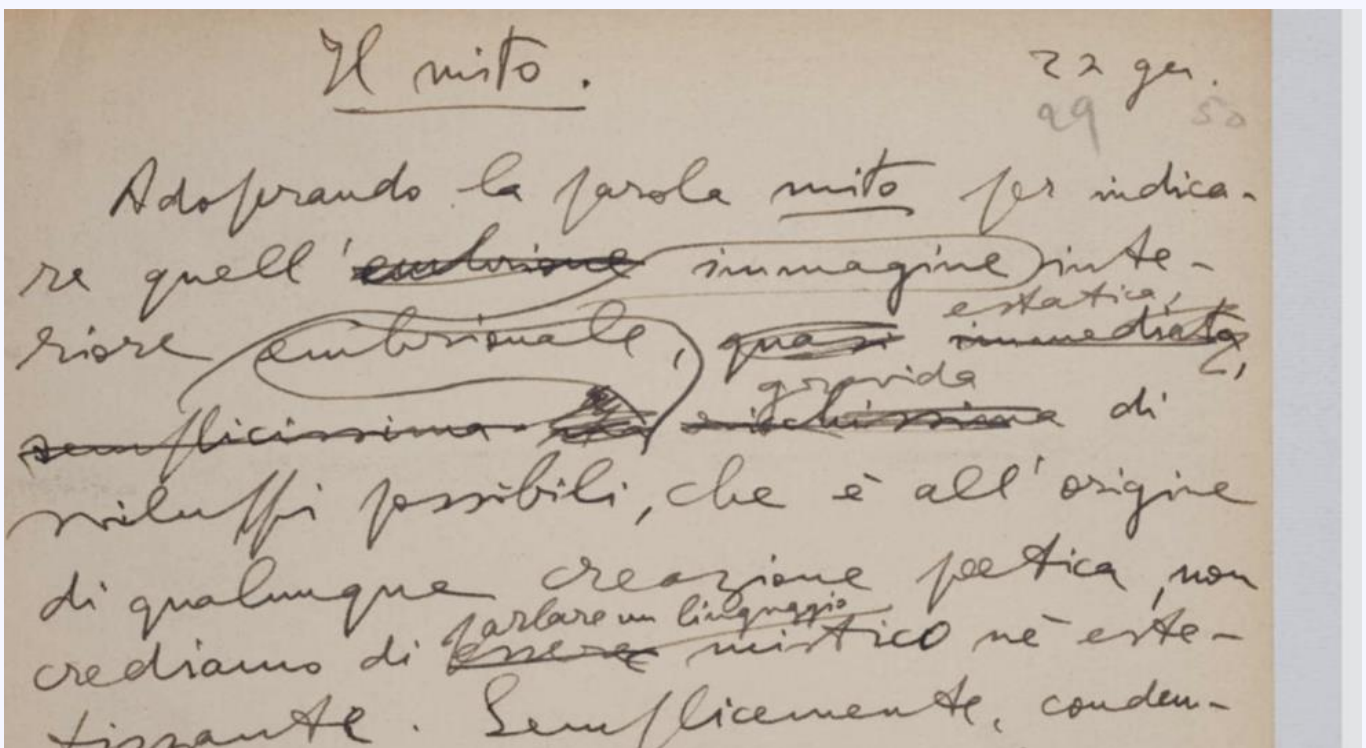 Il mito.
22 gen.
29 50
Adoperando la parola mito per indica-
re quell' embrione immagine inte-
riore embrionale, quasi immediata,
estatica,
semplicissima di
gravida
sviluppi possibili, che è all'origine
di qualunque creazione poetica, non
parlare un linguaggio
crediamo di essere mistico né este-
tizzante. Semplicemente, conden-